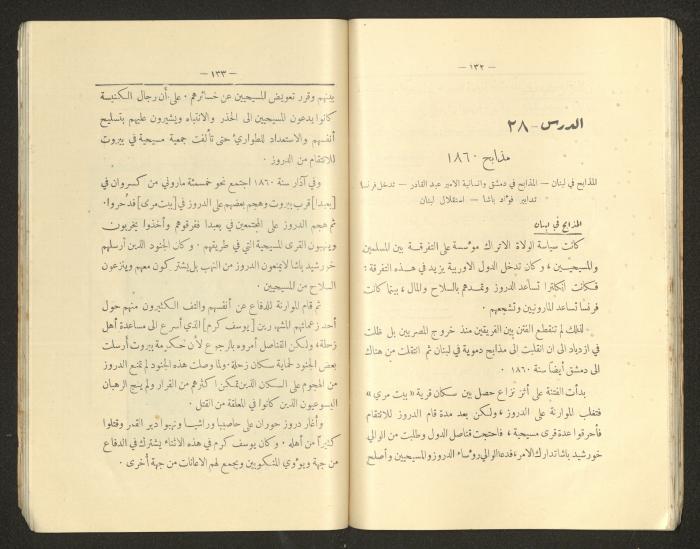 — ١٣٢ —
الدرس - ٢٨
مذابح ١٨٦٠
المذابح في لبنان — المذابح في دمشق وانسانية الامير عبد القادر — تدخل فرنسا
تدابير فؤاد باشا — استقلال لبنان
المذابح في لبنان
كانت سياسة الولاة الاتراك مؤسسة على التفرقة بين المسلمين
والمسيحيين ، وكان تدخل الدول الاوربية يزيد في هذه التفرقة :
فكانت انكلترا تساعد الدروز وتمدهم بالسلاح والمال ، بينما كانت
فرنسا تساعد المارونيين وتشجعهم .
لذلك لم تنقطع الفتن بين الفريقين منذ خروج المصريين بل ظلت
في ازدياد الى ان انقلبت الى مذابح دموية في لبنان ثم انتقلت من هناك
الى دمشق أيضاً سنة ١٨٦٠ .
بدأت الفتنة على أثر نزاع حصل بين سكان قرية « بيت مري »
فتغلب الموارنة على الدروز ، ولكن بعد مدة قام الدروز للانتقام
فأحرقوا عدة قرى مسيحية ، فاحتجت قناصل الدول وطلبت من الوالي
خورشيد باشا تدارك الامر ، فدعا الوالي رؤساء الدروز والمسيحيين وأصلح
— ١٣٣ —
بينهم وقرر تعويض المسيحيين عن خسائرهم . على أن رجال الكنيسة
كانوا يدعون المسيحيين الى الحذر والانتباه ويشيرون عليهم بتسليح
أنفسهم والاستعداد للطوارئ حتى تألفت جمعية مسيحية في بيروت
للانتقام من الدروز .
وفي آذار سنة ١٨٦٠ اجتمع نحو خمسمئة ماروني من كسروان في
[بعبدا] قرب بيروت وهجم بعضهم على الدروز في [بيت مري] فدُحروا .
ثم هجم الدروز على المجتمعين في بعبدا ففرقوهم وأخذوا يخربون
وينهبون القرى المسيحية التي في طريقهم . وكان الجنود الذين أرسلهم
خورشيد باشا لا يمنعون الدروز من النهب بل يشتركون معهم وينزعون
السلاح من المسيحيين .
ثم قام الموارنة للدفاع عن أنفسهم والتف الكثيرون منهم حول
أحد زعمائهم المشهورين [يوسف كرم] الذي أسرع الى مساعدة أهل
زحلة ، ولكن القناصل أمروه بالرجوع لأن حكومة بيروت أرسلت
بعض الجنود لحماية سكان زحلة . ولما وصلت هذه الجنود لم تمنع الدروز
من الهجوم على السكان الذين تمكن اكثرهم من الفرار ولم ينج الرهبان
اليسوعيون الذين كانوا في المعلقة من القتل .
وأغار دروز حوران على حاصبيا وراشيا ونهبوا دير القمر وقتلوا
كثيراً من أهله . وكان يوسف كرم في هذه الاثناء يشترك في الدفاع
من جهة ويؤوي المنكوبين ويجمع لهم الاعانات من جهة أخرى .